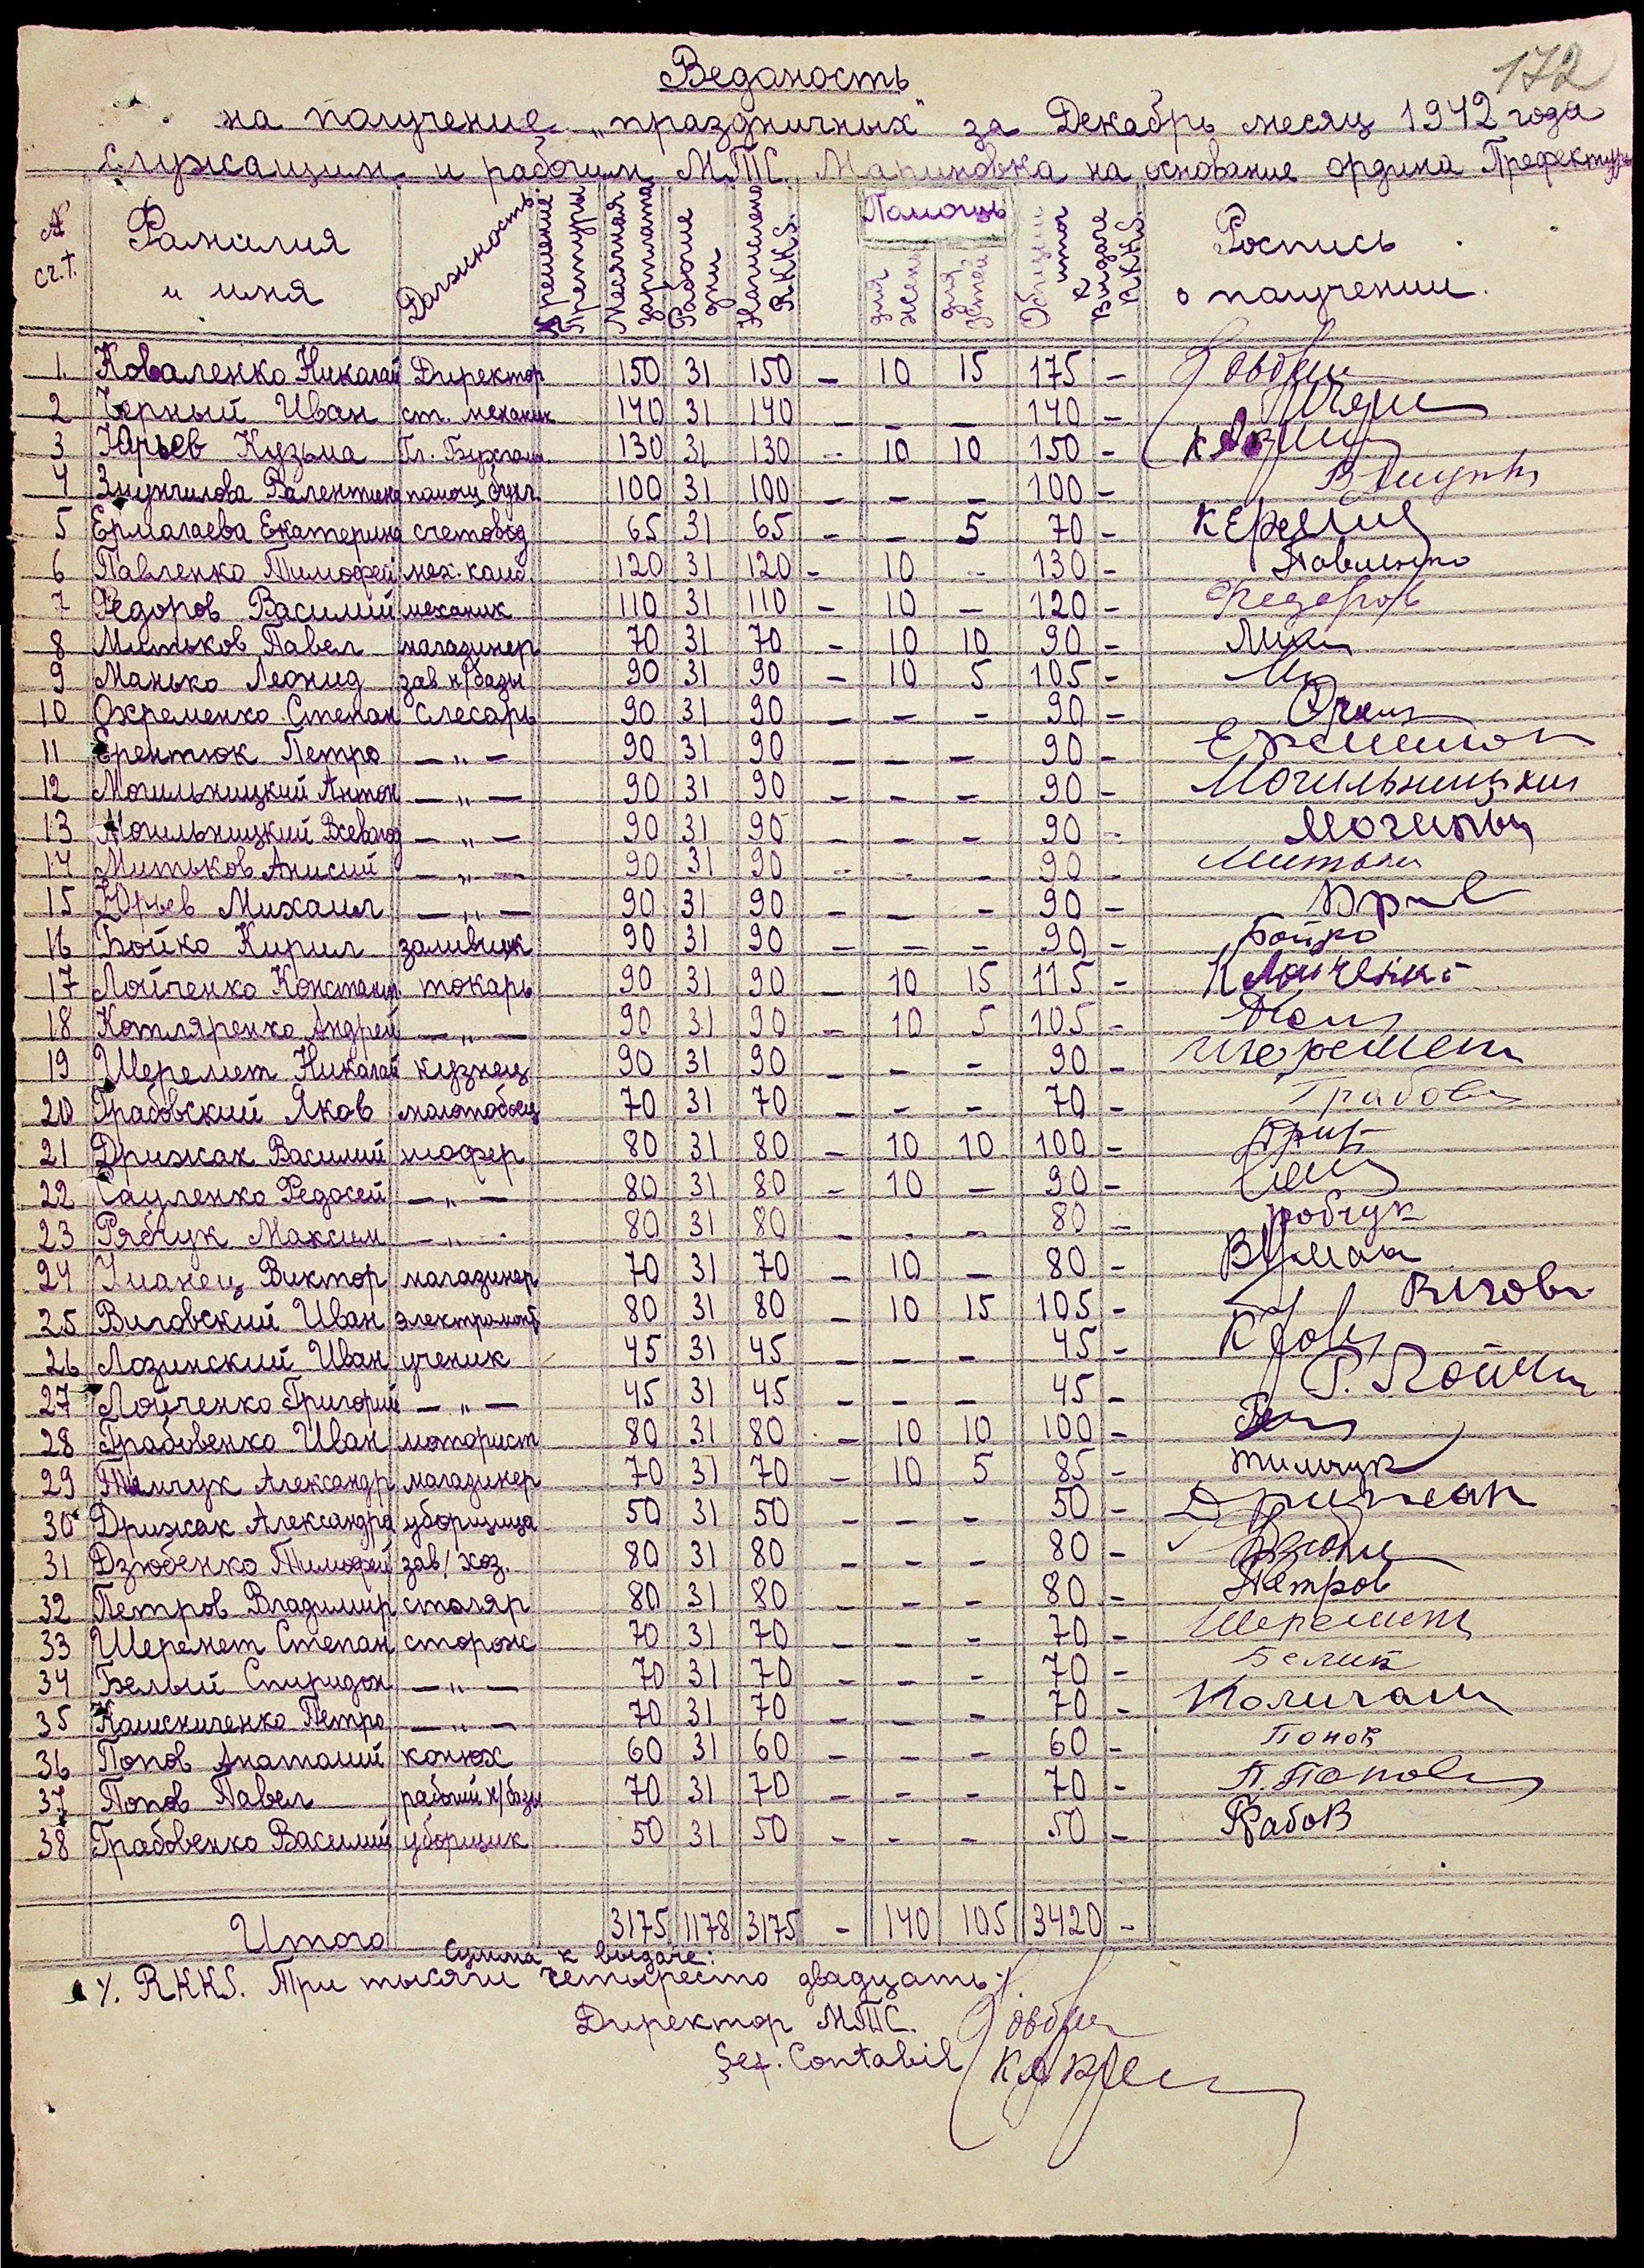 172
Ведомость
на получение „праздничных“ за Декабрь месяц 1942 года
Служащим и рабочим М.Т.С. Мариновка на основание ордина Префектуры
№ сч.т. Фамилия и имя Должность Месячная зарплата Рабочие дни Начислено RKKS. Помощь для жены для детей Общий итог к выдаче RKKS. Роспись о получении.
1. Коваленко Николай Директор 150 31 150 – 10 15 175 –
2 Черный Иван ст. механик 140 31 140 – – – 140 –
3 Юрьев Кузьма Гл. Бухгалт 130 31 130 – 10 10 150 –
4 Валентина помощ. бухг. 100 31 100 – – – 100 –
5 Ермалаева Екатерина счетовод 65 31 65 – – 5 70 –
6 Павленко Тимофей мех. комб. 120 31 120 – 10 – 130 – Павленко
7 Федоров Василий механик 110 31 110 – 10 – 120 – Федоров
8 Митьков Павел магазинер 70 31 70 – 10 10 90 –
9 Манько Леонид зав н/базы 90 31 90 – 10 5 105 –
10 Охременко Степан слесарь 90 31 90 – – – 90 –
11 Ерентюк Петро –„– 90 31 90 – – – 90 –
12 Могильницкий Антон –„– 90 31 90 – – – 90 – Могильницкий
13 Могильницкий Всеволод –„– 90 31 90 – – – 90 –
14 Митьков Анисий –„– 90 31 90 – – – 90 –
15 Юрьев Михаил –„– 90 31 90 – – – 90 –
16 Бойко Кирил заливщик 90 31 90 – – – 90 – Бойко
17 Лойченко Констант токарь 90 31 90 – 10 15 115 –
18 Котляренко Андрей –„– 90 31 90 – 10 5 105 –
19 Шеремет Николай кузнец 90 31 90 – – – 90 – Шеремет
20 Грабовский Яков молотобоец 70 31 70 – – – 70 –
21 Дрижак Василий шофер 80 31 80 – 10 10 100 –
22 Сауленко Федосей –„– 80 31 80 – 10 – 90 –
23 Рябчук Максим –„– 80 31 80 – – – 80 –
24 Уманец Виктор магазинер 70 31 70 – 10 – 80 –
25 Виговский Иван электромонт 80 31 80 – 10 15 105 –
26 Лозинский Иван ученик 45 31 45 – – – 45 –
27 Лойченко Григорий –„– 45 31 45 – – – 45 –
28 Грабовенко Иван моторист 80 31 80 – 10 10 100 –
29 Тимчук Александр магазинер 70 31 70 – 10 5 85 – Тимчук
30 Дрижак Александра уборщица 50 31 50 – – – 50 – Дрижак
31 Дзюбенко Тимофей зав/хоз. 80 31 80 – – – 80 –
32 Петров Владимир столяр 80 31 80 – – – 80 – Петров
33 Шеремет Степан сторож 70 31 70 – – – 70 – Шеремет
34 Белый Спиридон –„– 70 31 70 – – – 70 –
35 Петро –„– 70 31 70 – – – 70 –
36 Попов Анатолий конюх 60 31 60 – – – 60 – Попов
37 Попов Павел рабочий н/базы 70 31 70 – – – 70 – П. Попов
38 Грабовенко Василий уборщик 50 31 50 – – – 50 – Грабов
Итого 3175 1178 3175 – 140 105 3420 –
Сумма к выдаче:
RKKS. Три тысячи четыресто двадцать.
Директор МТС.
Şef. Contabil